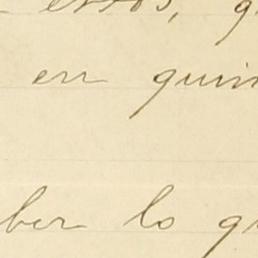 estos, q
en quin
ber lo q